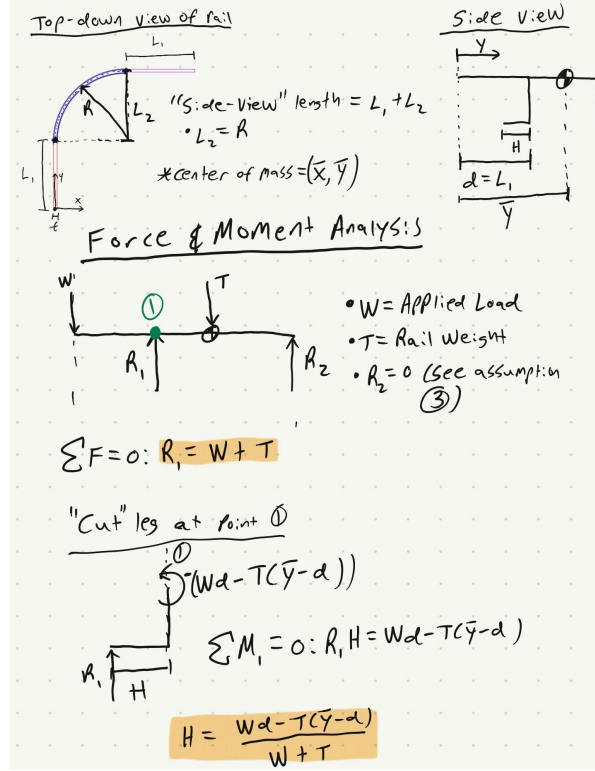 Top-down view of rail
L₁
R
L₂
"Side-View" length = L₁ + L₂
• L₂ = R
*center of mass = (x̄, ȳ)
L₁
y
x
H
t
Side View
y
H
d = L₁
ȳ
Force & Moment Analysis
W
①
T
R₁
R₂
• W = Applied Load
• T = Rail Weight
• R₂ = 0 (see assumption
③)
ΣF = 0: R₁ = W + T
"Cut" leg at point ①
①
(Wd - T(ȳ-d))
ΣM₁ = 0: R₁H = Wd - T(ȳ-d)
R₁
H
H = Wd - T(ȳ-d) / W + T